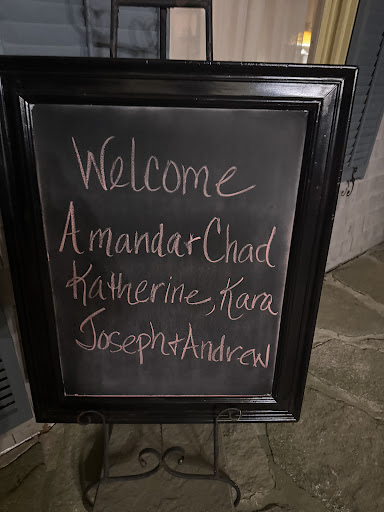 Welcome
Amanda + Chad
Katherine, Kara
Joseph + Andrew